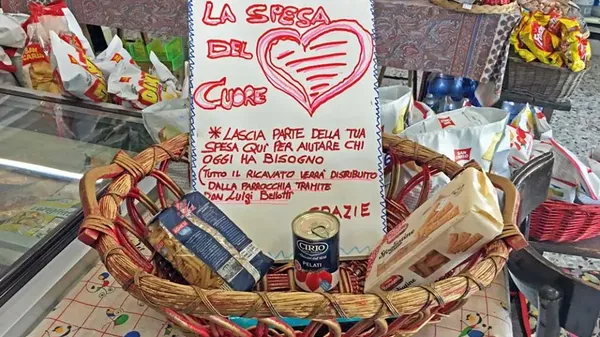 LA SPESA
DEL
CUORE
* LASCIA PARTE DELLA TUA
SPESA QUI PER AIUTARE CHI
OGGI HA BISOGNO
(TUTTO IL RICAVATO VERRÀ DISTRIBUITO
DALLA PARROCCHIA TRAMITE
DON LUIGI BELLOTTI
GRAZIE
CIRIO
PELATI